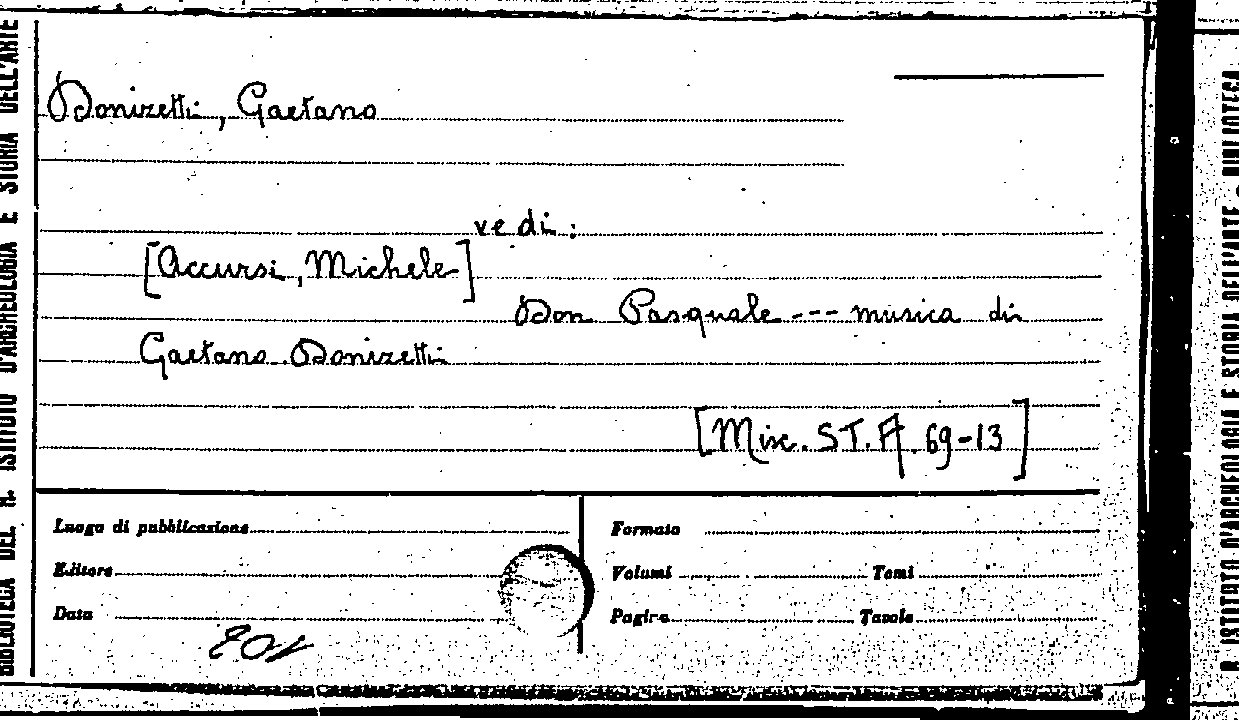 Donizetti, Gaetano
vedi:
[Accursi, Michele]
Don Pasquale --- musica di
Gaetano Donizetti
[Misc. ST. A. 69-13]
Luogo di pubblicazione
Editore
Data
Formato
Volumi Tomi
Pagine Tavole
BIBLIOTECA DEL R. ISTITUTO D'ARCHEOLOGIA E STORIA DELL'ARTE
R. ISTITUTO D'ARCHEOLOGIA E STORIA DELL'ARTE BIBLIOTECA